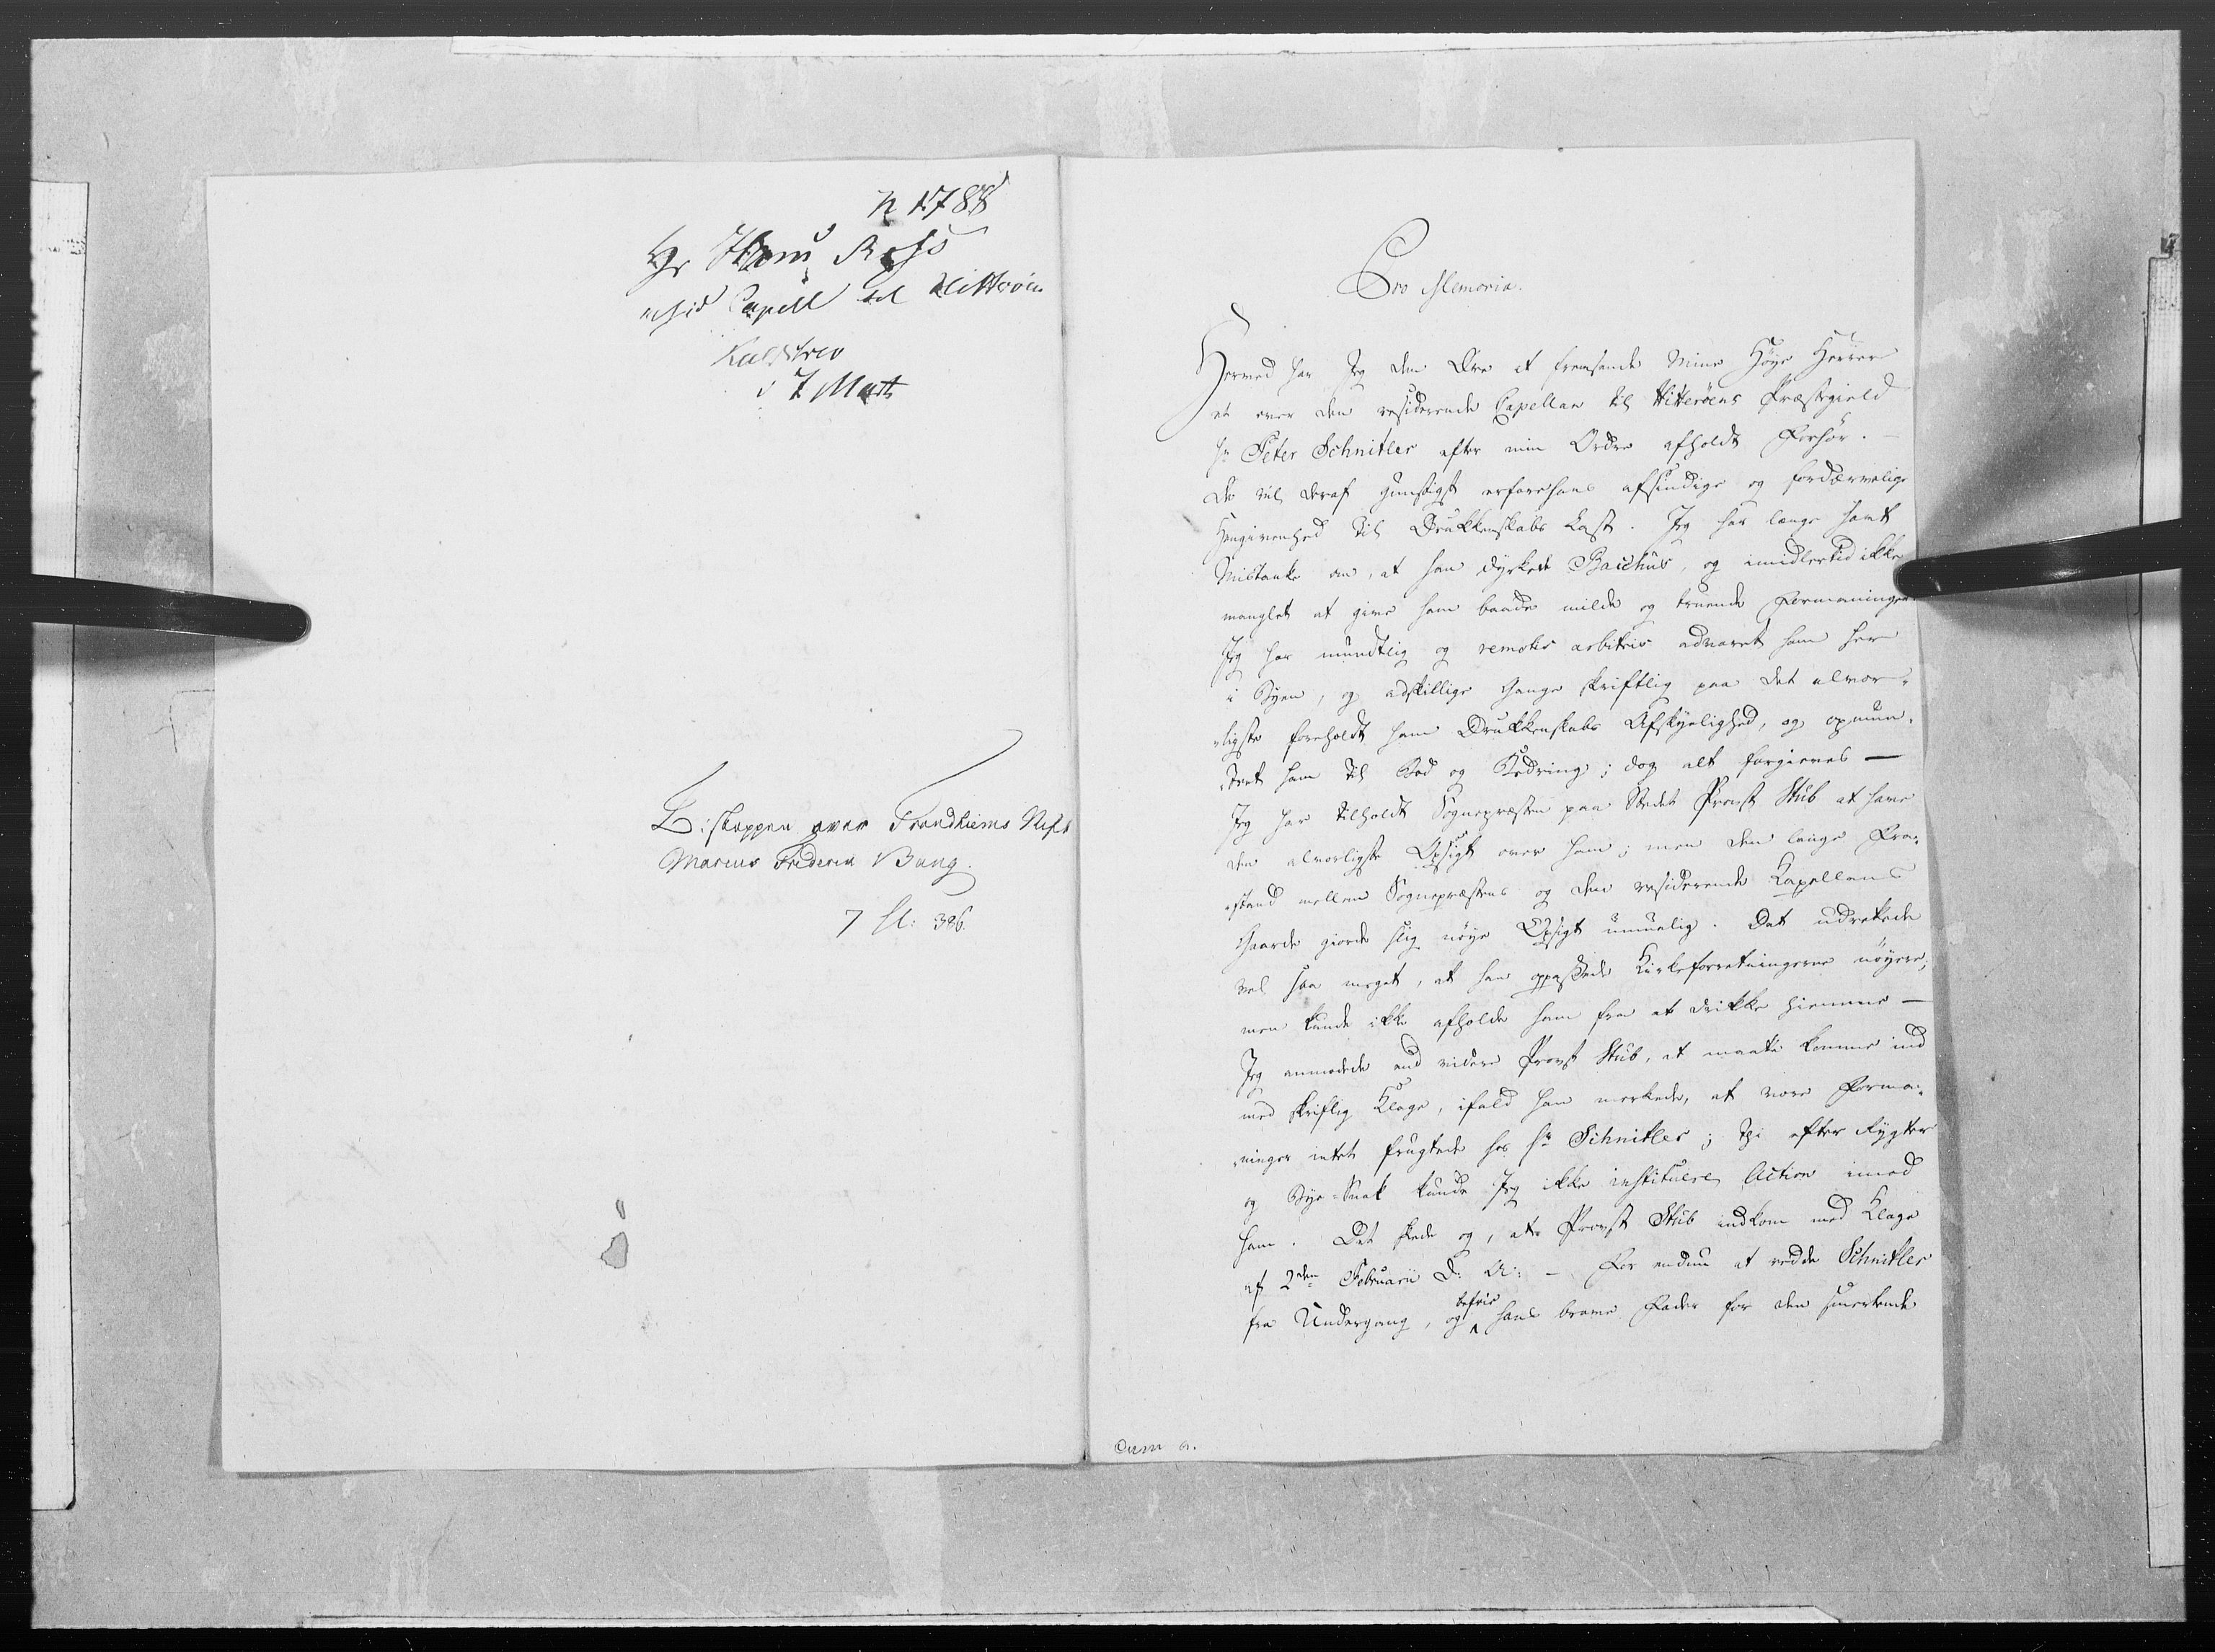 1788
Hr Hans
resid Capell til Hitterøen
d 7 Mart
Biskoppen over Trondhiems Stift
Marcus Frideric Bang.
7 Sl: 386.
Pro Memoria.
Herved har Jeg den Ære at fremsende Mine Høye Herrer
et over den residerende Capellan til Hitterøens Præstegield
Hr Peter Schnitler efter min Ordre afholdt Forhør. —
De vil deraf gunstigst erfare hans afsindige og fordærvelige
Hengivenhed til Drukkenskabs Last. Jeg har længe havt
Mistanke om, at han dyrkede Bacchus, og imidlertid ikke
manglet at give ham baade milde og truende Formaninger.
Jeg har mundtlig og remotis arbitris advaret ham her
i Byen, og adskillige Gange skriftlig paa det alvor-
ligste foreholdt ham Drukkenskabs Afskyelighed, og opmun-
tret ham til Bod og Bedring; dog alt forgieves —
Jeg har tilholdt Sognepræsten paa Stedet Provst Stub at have
den alvorligste Opsigt over ham; men den lange Fra-
stand mellem Sognepræstens og den residerende Kapellans
Gaarde giorde slig nøye Opsigt umuelig. Det udrettede
vel saa meget, at han oppassede Kirkeforretningerne nøyere;
men kunde ikke afholde ham fra at drikke hiemme —
Jeg anmodede end videre Provst Stub, at maatte komme ind
med skriflig Klage, ifald han merkede, at vore Forma-
ninger intet frugtede hos Hr Schnitler; thi efter Rygter
og Bye-Snak kunde Jeg ikke instituere Action imod
ham. Det skede og, at Provst Stub indkom med Klage
af 2den Februarii d: A: — For endnu at redde Schnitler
fra Undergang, og befrie hans brave Fader for den smertende